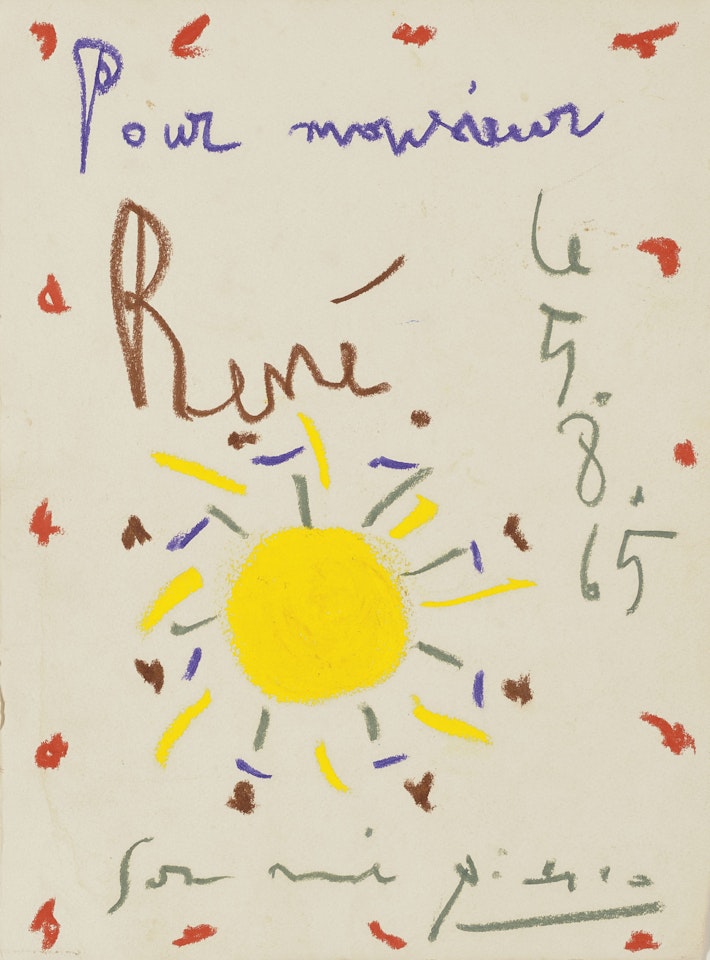 Pour monsieur
René
le
5.
8.
65
Son ami Picasso